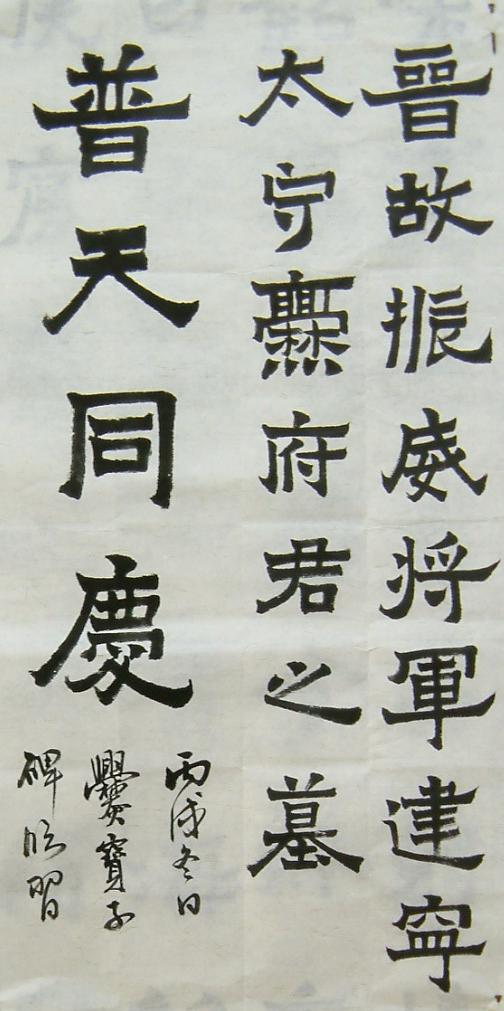 晉故振威將軍建寧
太守爨府君之墓
普天同慶
丙戌冬日
爨寶子
碑臨習